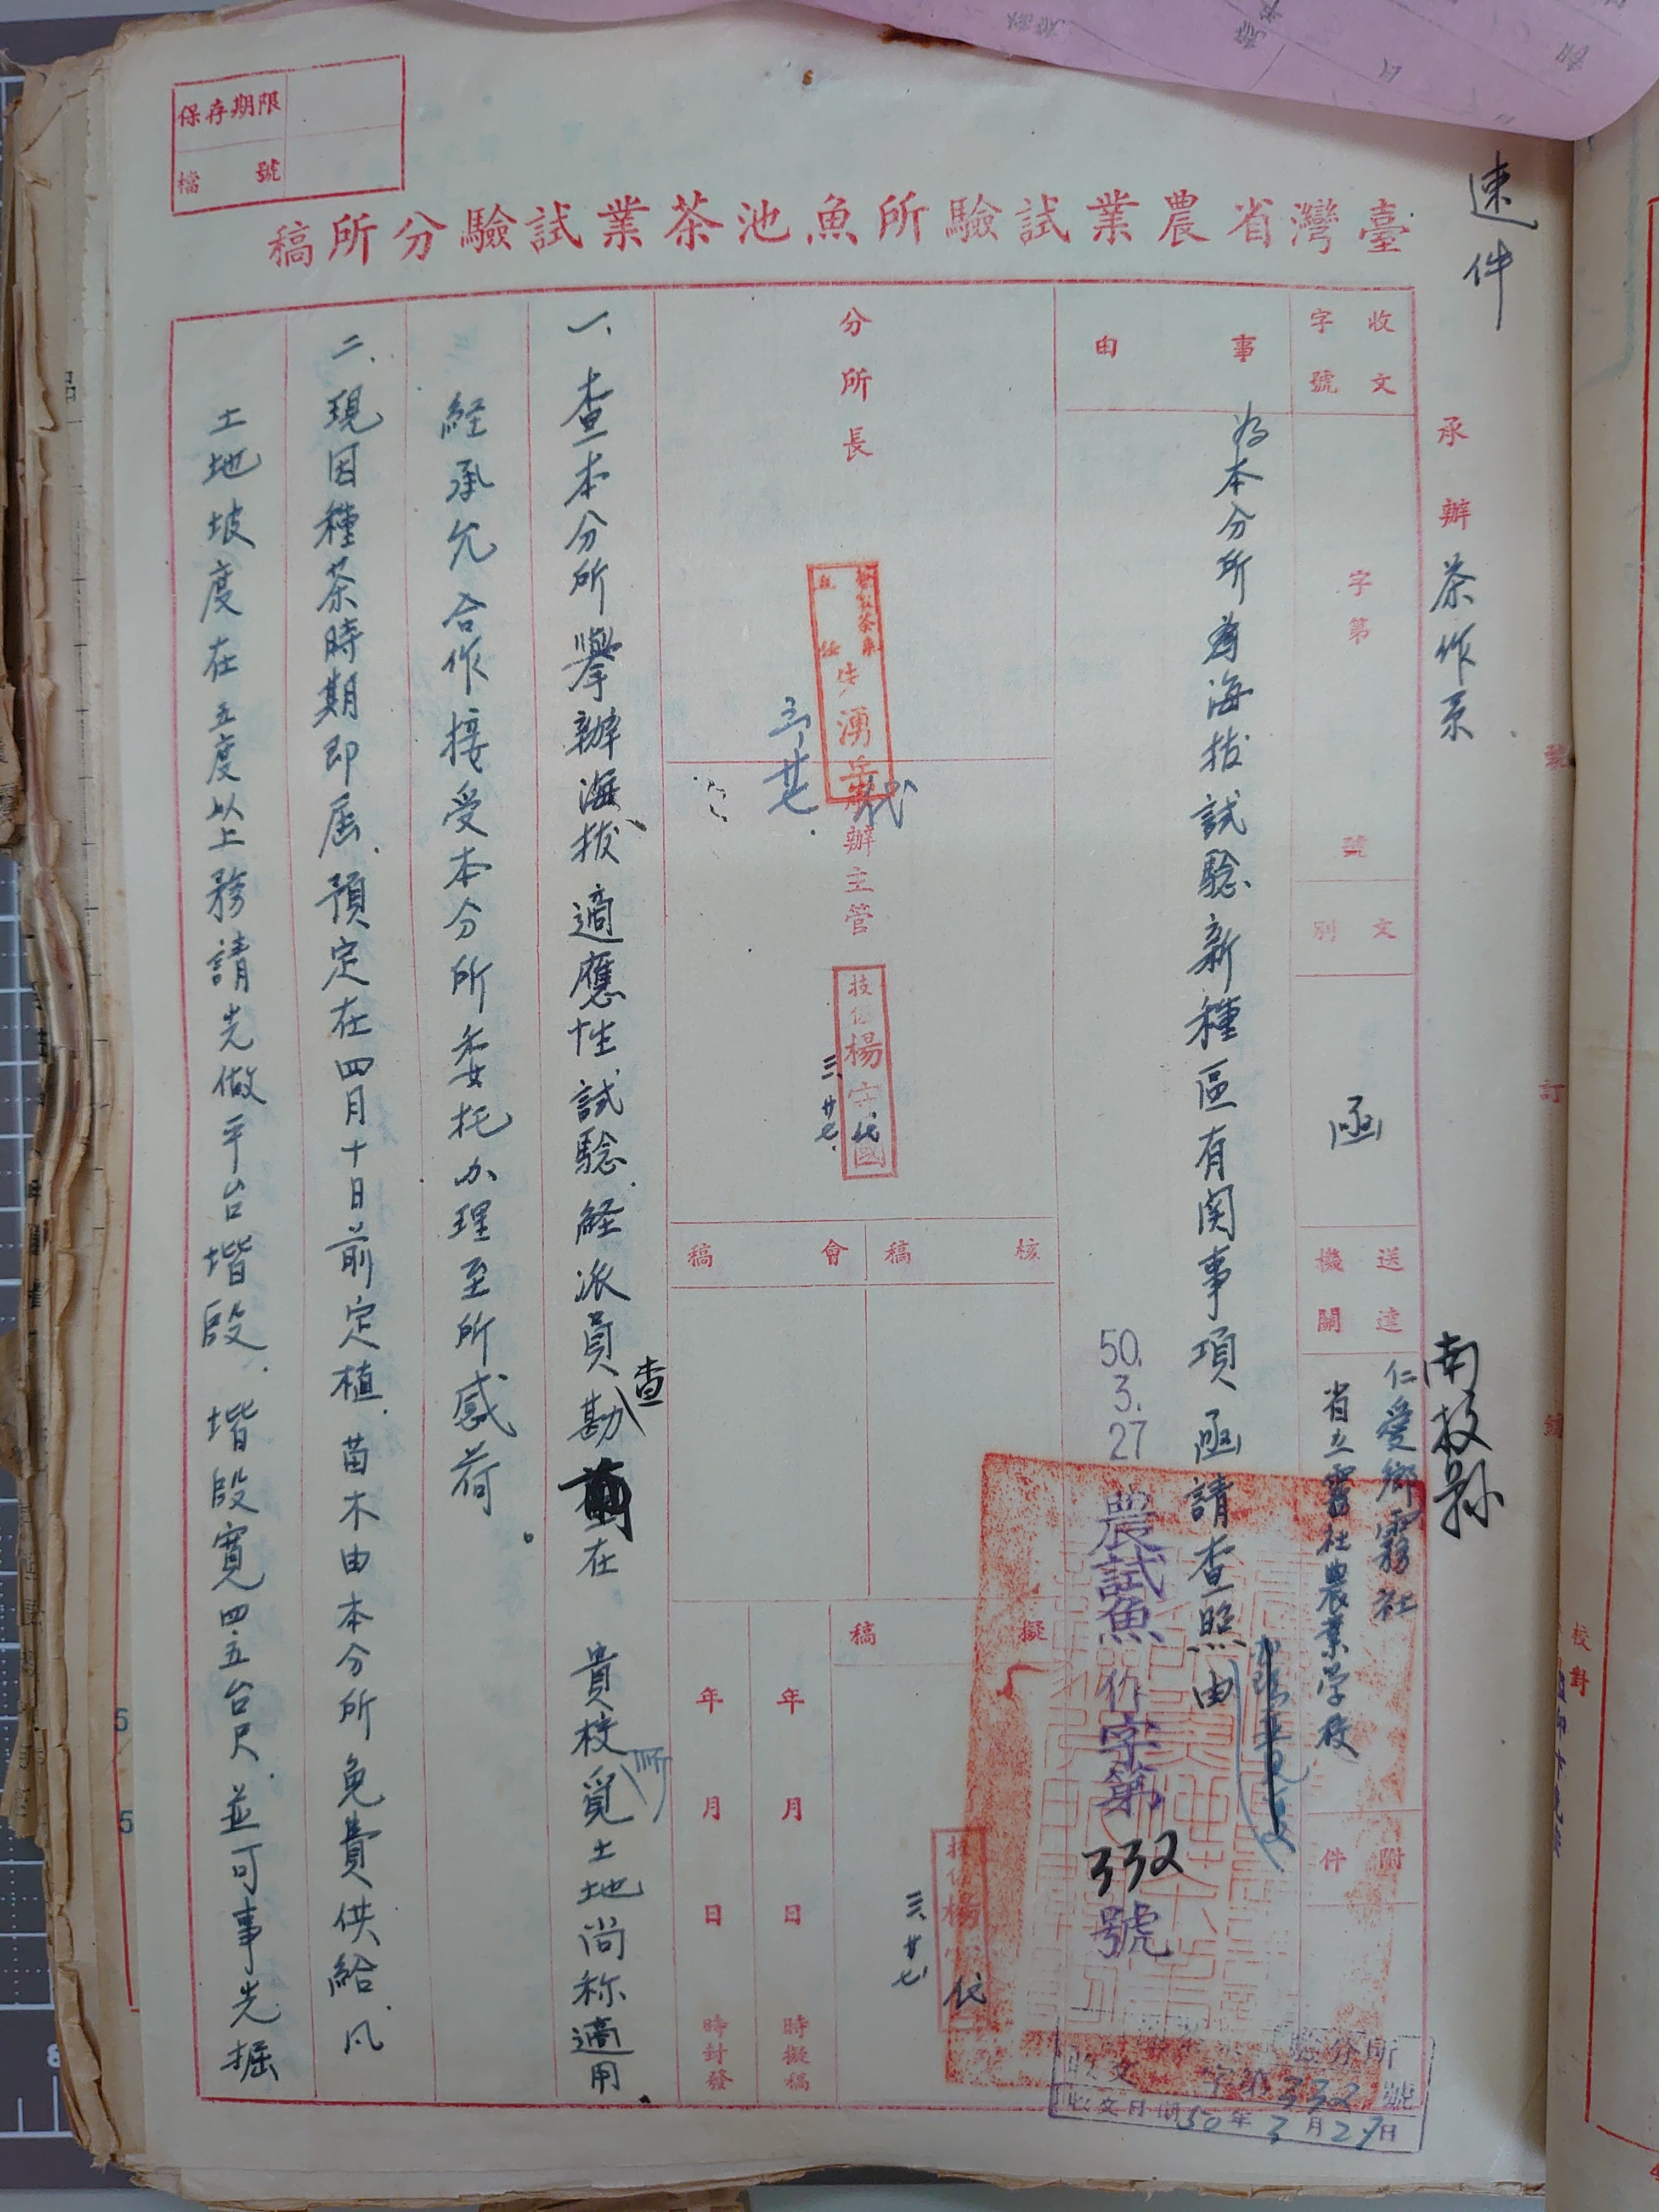 速件
保存期限
檔號
臺灣省農業試驗所魚池茶業試驗分所稿
承辦 茶作系
收文字號
字第 號
文別
函
送達機關
南投縣
仁愛鄉霧社
省立霧社農業学校
附件
事由
為本分所為海拔試驗新種區有関事項函請查照由
50.3.27
農試魚作字第332號
分所長
湧岳
代
三、廿七
承辦主管
技佐楊
代
三、廿七
核稿
會稿
擬稿
技佐楊
代
三、廿七
年 月 日 時擬稿
年 月 日 時封發
一、查本分所舉辦海拔適應性試驗経派員勘查在 貴校所覓土地尚称適用
経承允合作接受本分所委托办理至所感荷。
二、現因種茶時期即屆.預定在四月十日前定植.苗木由本分所免費供給.凡
土地坡度在五度以上務請先做平台堦段.堦段寬四.五台尺.並可事先掘
分所
收文 字第332號
收文日期50年3月27日
裝
訂
線
校對